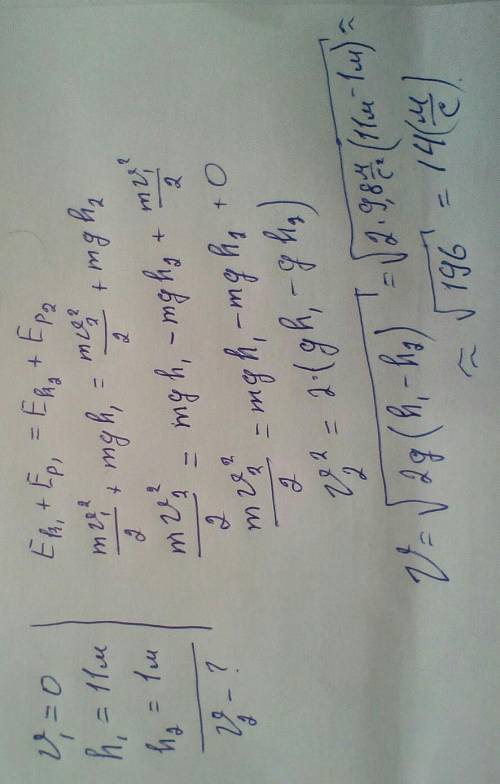 v₁ = 0
h₁ = 11м
h₂ = 1м
v₂ - ?
Eк₁ + Eр₁ = Eк₂ + Eр₂
mv₁²/2 + mgh₁ = mv₂²/2 + mgh₂
mv₂²/2 = mgh₁ - mgh₂ + mv₁²/2
mv₂²/2 = mgh₁ - mgh₂ + 0
v₂² = 2·(gh₁ - gh₂)
v = √2g(h₁ - h₂) = √2·9,8 м/с² (11м - 1м) ≈
≈ √196 = 14 (м/с).